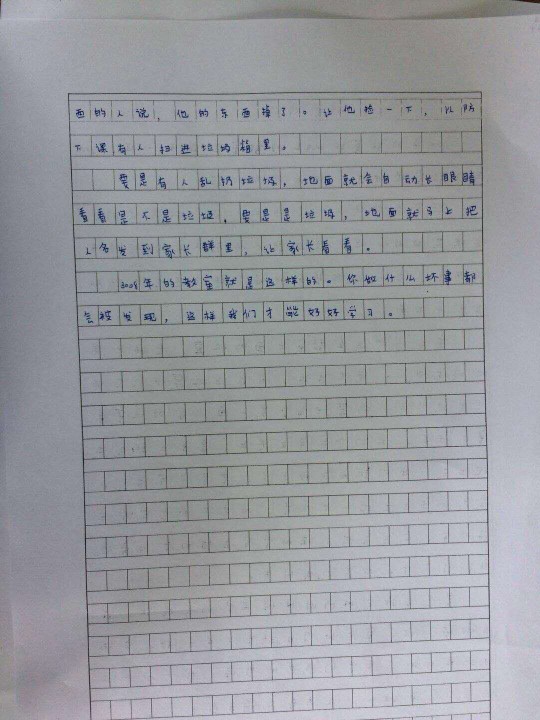 西的人说，他的东西掉了。让他捡一下，以防
下课有人扫进垃圾箱里。
要是有人乱扔垃圾，地面就会自动长眼睛
看看是不是垃圾，要是是垃圾，地面就马上把
人名发到家长群里，让家长看看。
3008年的教室就是这样的。你做什么坏事都
会被发现，这样我们才能好好学习。